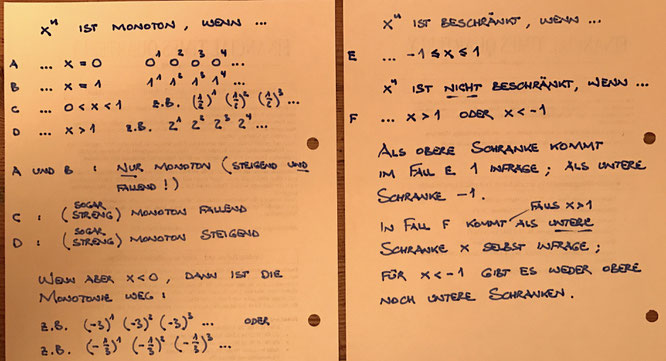 xⁿ IST MONOTON, WENN ...
A ... x = 0 0¹ 0² 0³ 0⁴ ...
B ... x = 1 1¹ 1² 1³ 1⁴ ...
C ... 0 < x < 1 z.B. (1/2)¹ (1/2)² (1/2)³ ...
D ... x > 1 z.B. 2¹ 2² 2³ 2⁴ ...
A UND B : NUR MONOTON (STEIGEND UND
FALLEND!)
C : (SOGAR STRENG) MONOTON FALLEND
D : (SOGAR STRENG) MONOTON STEIGEND
WENN ABER x < 0, DANN IST DIE
MONOTONIE WEG :
z.B. (-3)¹ (-3)² (-3)³ ... ODER
z.B. (-1/3)¹ (-1/3)² (-1/3)³ ...
xⁿ IST BESCHRÄNKT, WENN ...
E ... -1 ≤ x ≤ 1
xⁿ IST NICHT BESCHRÄNKT, WENN ...
F ... x > 1 ODER x < -1
ALS OBERE SCHRANKE KOMMT
IM FALL E 1 INFRAGE; ALS UNTERE
SCHRANKE -1.
FALLS x > 1
IN FALL F KOMMT ALS UNTERE
SCHRANKE x SELBST INFRAGE;
FÜR x < -1 GIBT ES WEDER OBERE
NOCH UNTERE SCHRANKEN.